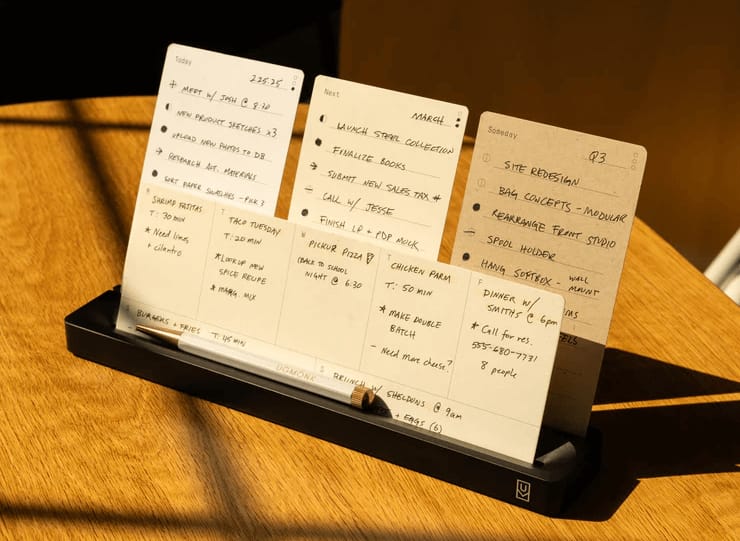 Today
2.25.25
MEET W/ JOSH @ 8:30
NEW PRODUCT SKETCHES x3
UPLOAD NEW PHOTOS TO DB
RESEARCH ALT. MATERIALS
SORT PAPER SWATCHES - PHK 3
Next
MARCH
LAUNCH STEEL COLLECTION
FINALIZE BOOKS
SUBMIT NEW SALES TAX #
CALL W/ JESSE
FINISH LP + PDP MOCK
Someday
Q3
SITE REDESIGN
BAG CONCEPTS - MODULAR
REARRANGE FRONT STUDIO
SPOOL HOLDER
HANG SOFTBOX - WALL
MOUNT
M
SHRIMP FAJITAS
T: 30 MIN
* Need limes
+ cilantro
T
TACO TUESDAY
T: 20 MIN
* LOOKUP NEW
SPICE RECIPE
* MARG. MIX
W
PICKUP PIZZA
(BACK TO SCHOOL
NIGHT @ 6:30
T
CHICKEN PARM
T: 50 MIN
* MAKE DOUBLE
BATCH
- Need more cheese?
F
DINNER W/
SMITHS @ 6pm
* Call for res.
555-680-7731
8 people
BURGERS + FRIES T: 45 MIN
S
BRUNCH W/ SHELDONS @ 9am
+ EGGS (6)
UGMONK